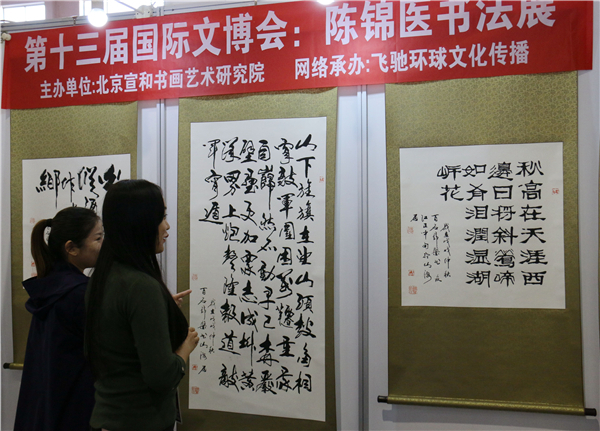 第十三届国际文博会：陈锦医书法展
主办单位:北京宣和书画艺术研究院 网络承办:飞驰环球文化传播
山下旌旗在望山頭鼓角相
聞敵軍圍困萬千重我
自巋然不動早已森嚴
壁壘更加众志成城黄
洋界上炮聲隆報道敵
軍宵遁
秋高在天涯西
邊日将斜鶯啼
如有泪潤濕湖
畔花